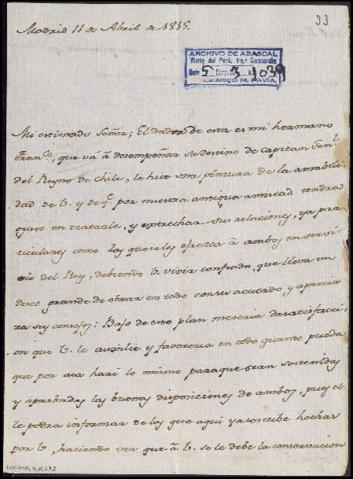 33
Madrid 11 de Abril de 1815.
ARCHIVO DE ABASCAL
Virrey del Perú,
5 3 1039
Mi estimado Señor; El dador de esta es mi hermano
Fran.co, que vá á desempeñar su destino de Capitan Gen.l
del Reyno de Chile, le hice una pintura de la amabili-
dad de V. y de q.e por nuestra antigua amistad tendra
gusto en tratarle, y extrechar sus relaciones, ya par-
ticulares como las que les ofrezca á ambos en servi-
cio del Rey, debiendo V. vivir confiado, que lleva un
deseo grande de obrar en todo con su acuerdo, y aprecia-
ra sus consejos: Bajo de este plan me seria de satisfacci-
on que V. le auxilie y favorezca en todo quanto pueda
que por aca haré lo mismo para que sean sostenidas
y aprobadas las buenas disposiciones de ambos, pues el
le podra informar de los que aqui ya se recibe hechas
por V. haciendo ver que á V. se le debe la conservacion